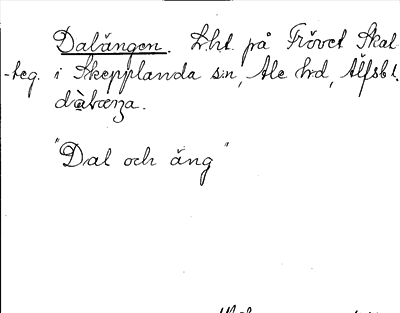 Dalängen. Lht. på Frövet Skat-
-teg. i Skepplanda sn, Ale hd, Älfsb l.
"Dal och äng"